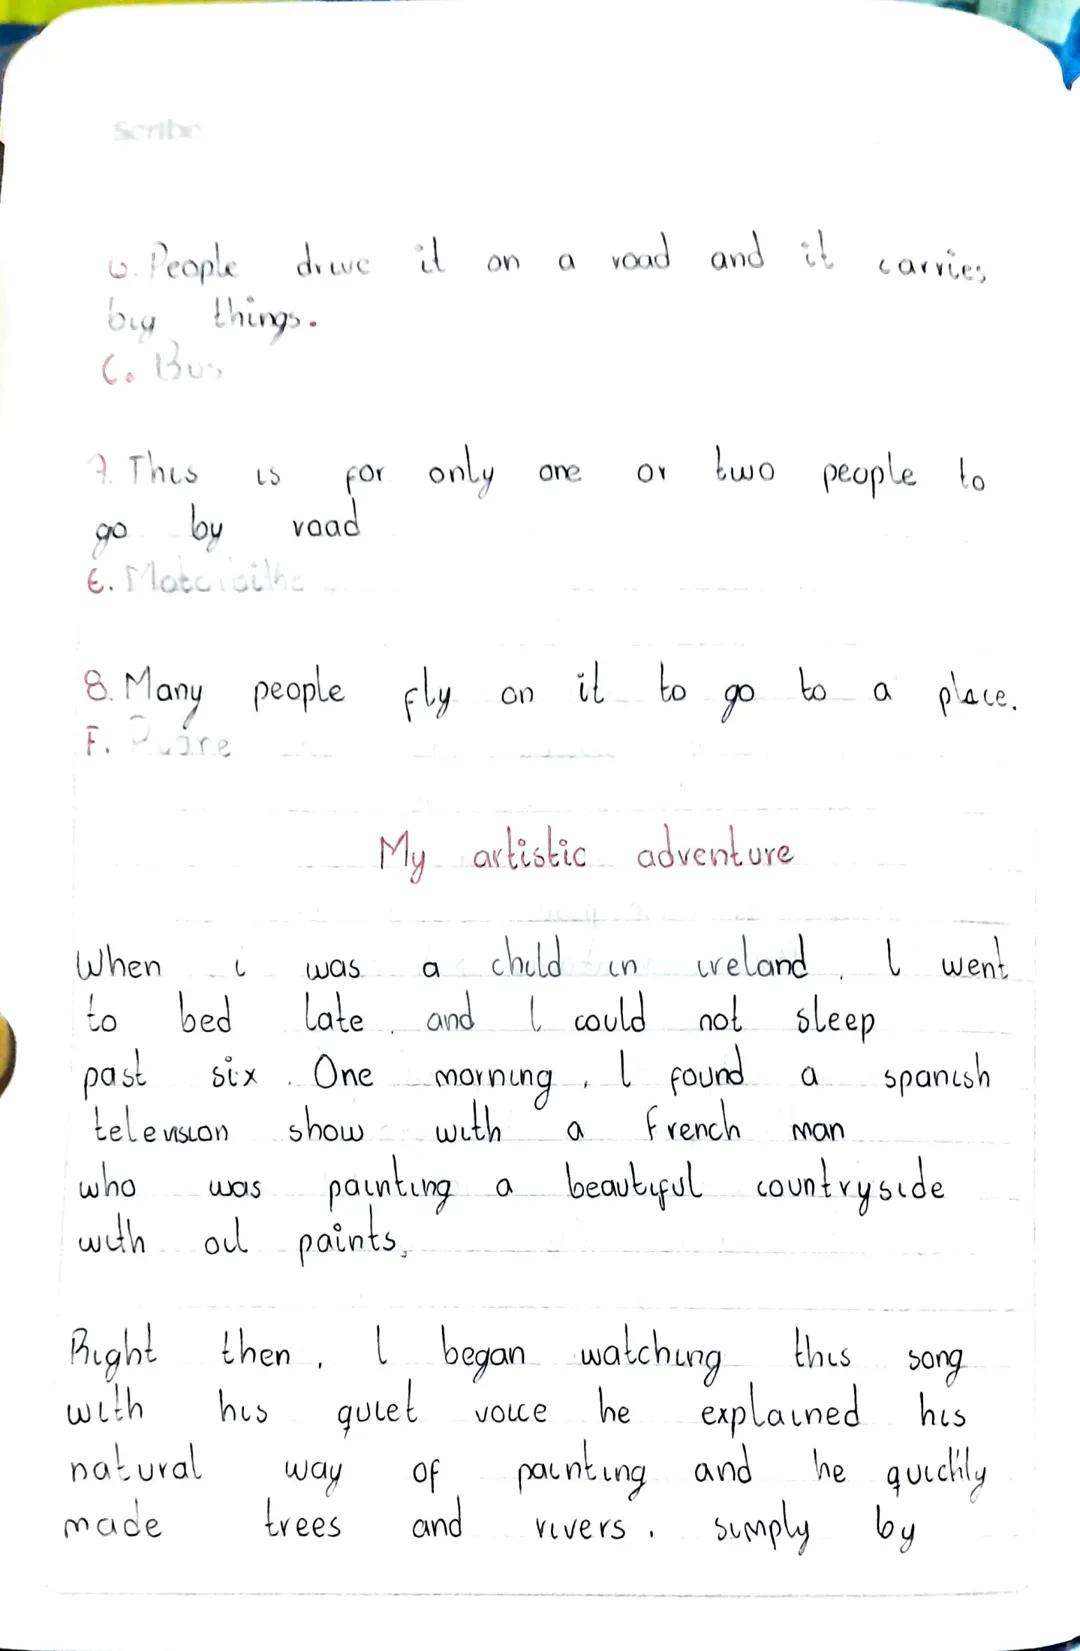 Scribe
6. People drive it on a road and it carries
big things.
C. Bus
7. This is for only one or two people to
go by road
E.
8. Many people fly on it to go to a place.
F.
My artistic adventure
When i was a child in ireland, I went
to bed late, and I could not sleep
past six. One morning, I found a spanish
television show with a French man
who was painting a beautiful countryside
with oil paints,
Right then, I began watching this song
with his quiet voice he explained his
natural way of painting and he quickly
made trees and rivers. simply by